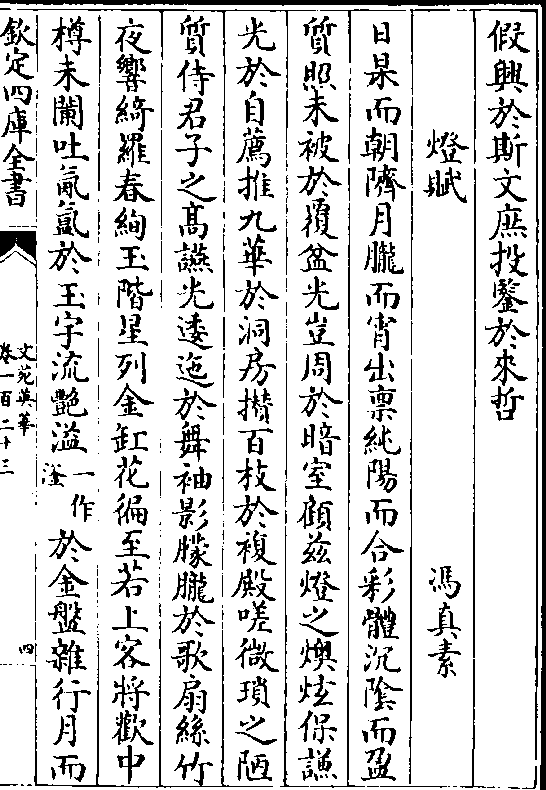 假興於斯文庶投鑒於來哲
燈賦 馮真素
日杲而朝隮月朧而宵出禀純陽而合彩體沉陰而盈
質照未被於覆盆光豈周於暗室顧兹燈之煥炫保謙
光於自薦推九華於洞房攅百枝於複殿嗟微瑣之陋
質侍君子之髙讌光逶迤於舞袖影朦朧於歌扇絲竹
夜響綺羅春絢玉階星列金缸花徧至若上客將歡中
樽未闌吐氤氲於玉宇流艶溢一作瀅於金盤雜行月而
欽定四庫全書
文苑英華
卷一百二十三
四